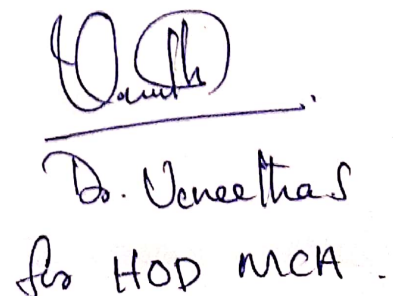 Dr. Vaneethas
for HOD MCA.